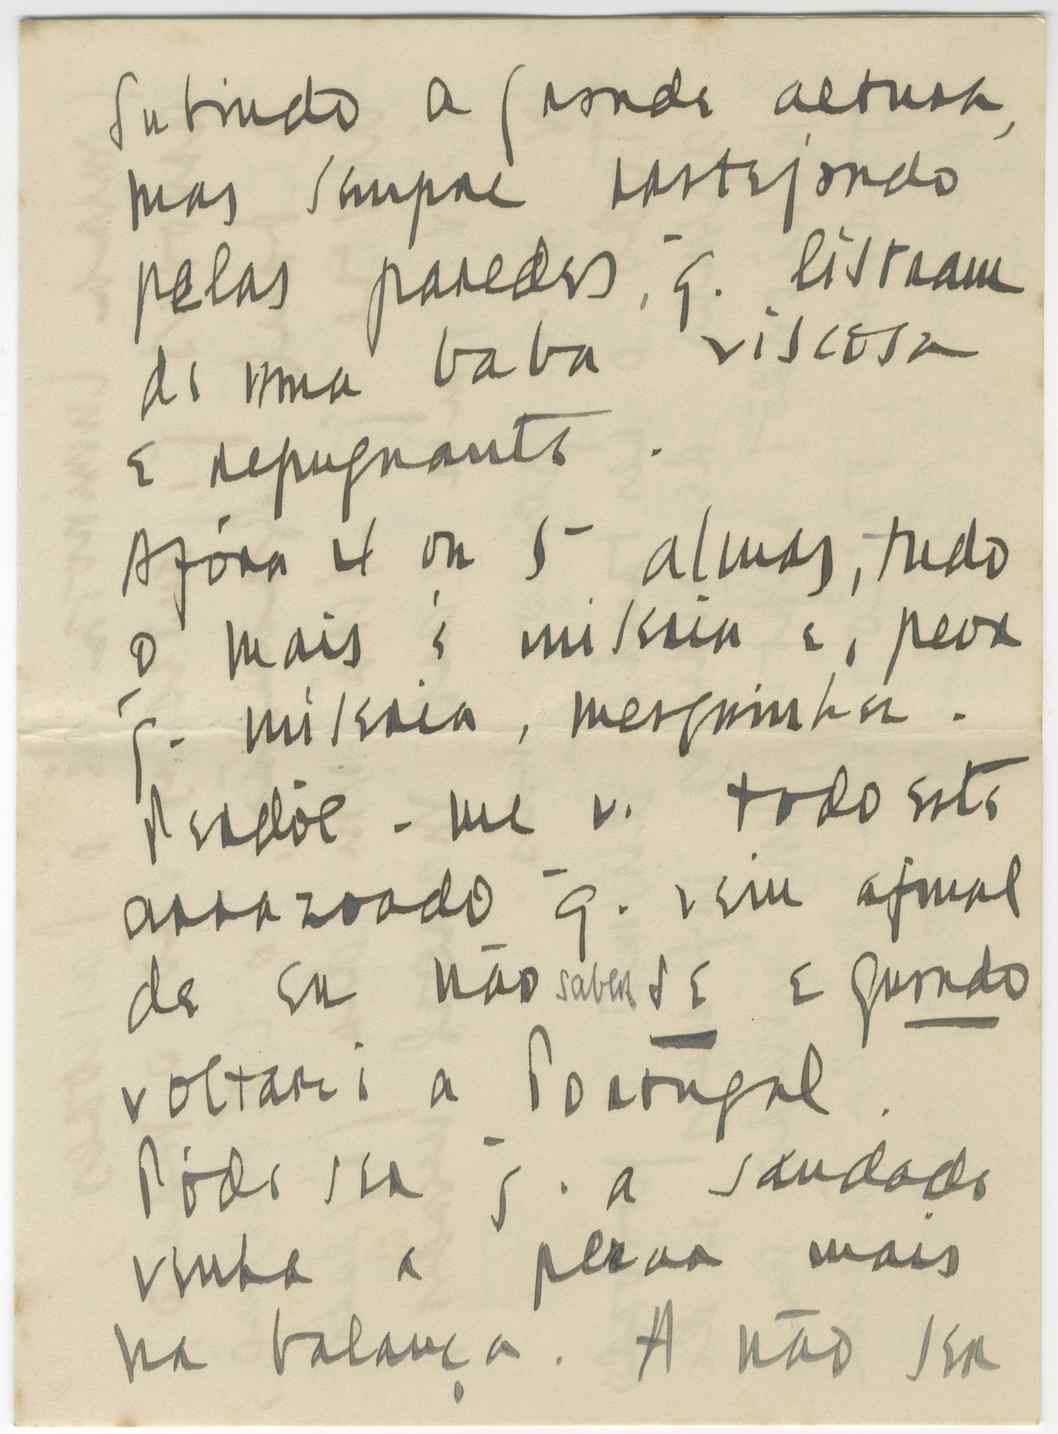 subindo a grande altura,
mas sempre rastejando
pelas paredes, q̄. listram
de uma baba viscosa
e repugnante.
Afóra 4 ou 5 almas, tudo
o mais é miseria e, peor
q̄. miseria, mesquinha.
Perdôe-me v. todo este
arrazoado q̄. vem afinal
de eu não saber se e quando
voltarei a Portugal.
Póde ser q̄. a saudade
venha a pesar mais
na balança. A não ser